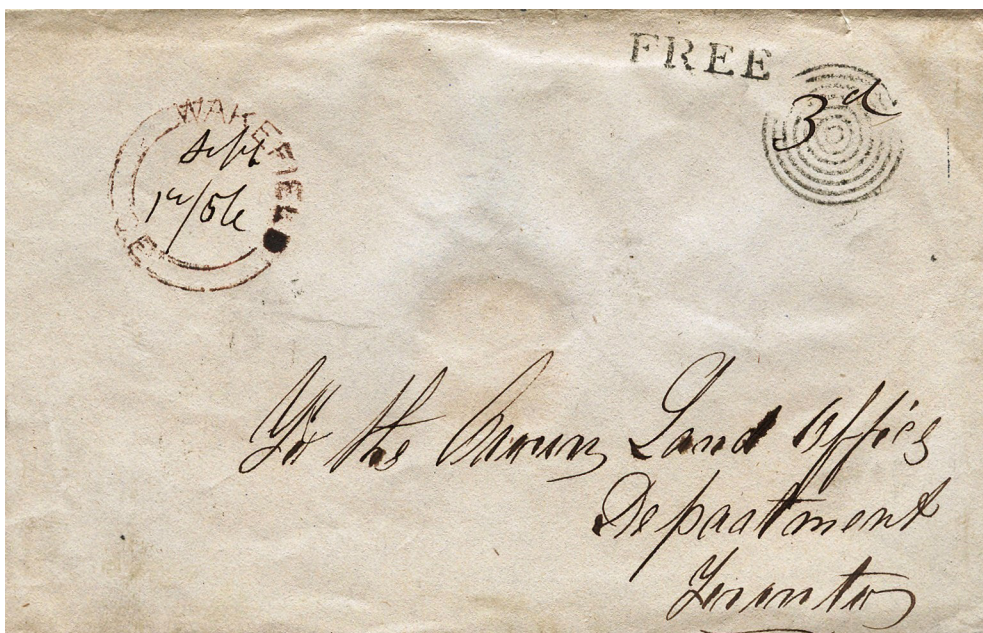 FREE
3d
WAKEFIELD
Sept
12/56
C.E
To the Crown Land Office
Department
Toronto